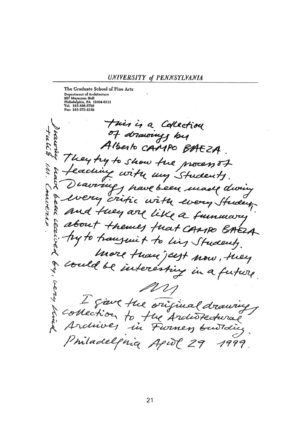 UNIVERSITY of PENNSYLVANIA
The Graduate School of Fine Arts
Department of Architecture
207 Meyerson Hall
Philadelphia, PA 19104-6311
Tel. 215-898-5728
Fax 215-573-2192
this is a Collection
of drawings by
Alberto CAMPO BAEZA.
They try to show the process of
teaching with my Students.
Drawings have been made during
every critic with every Student.
And they are like a summary
about themes that CAMPO BAEZA
try to transmit to his Students.
More than just now, they
could be interesting in a future.
I gave the original drawings
collection to the Architectural
Archives in Furness building.
Philadelphia April 29 1999.
Drawings have been received by
21